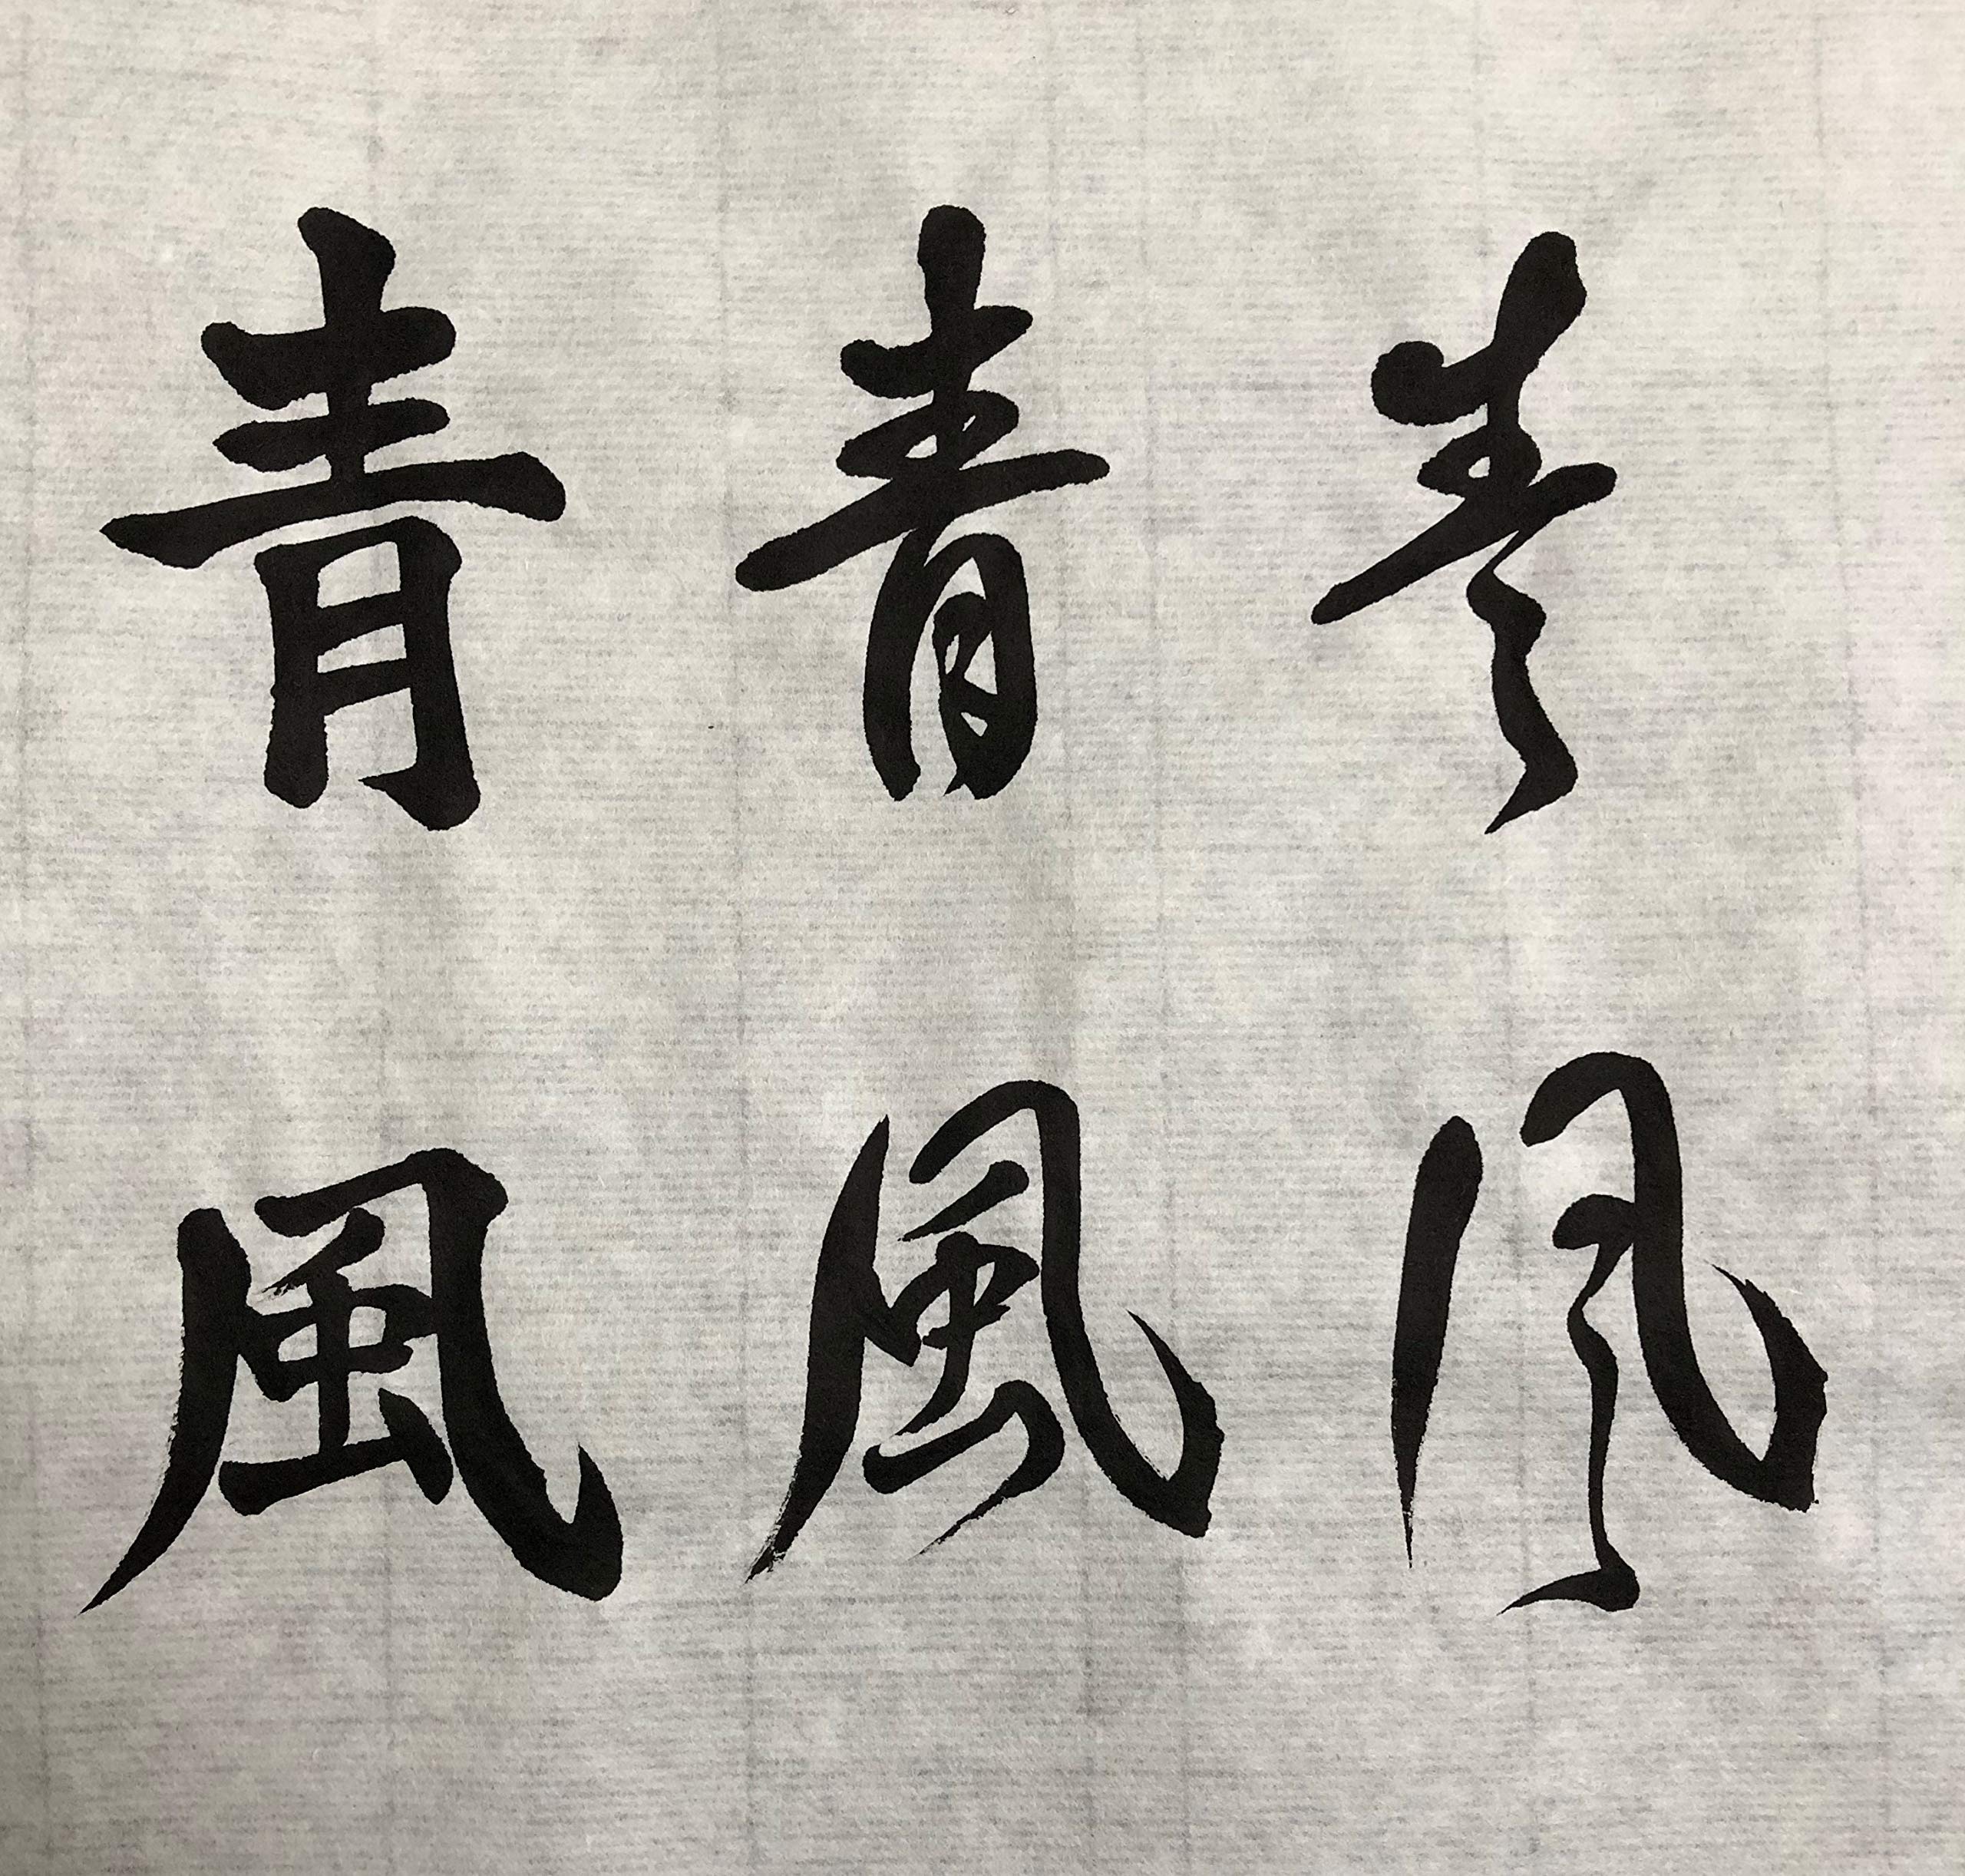 青青青
風風風